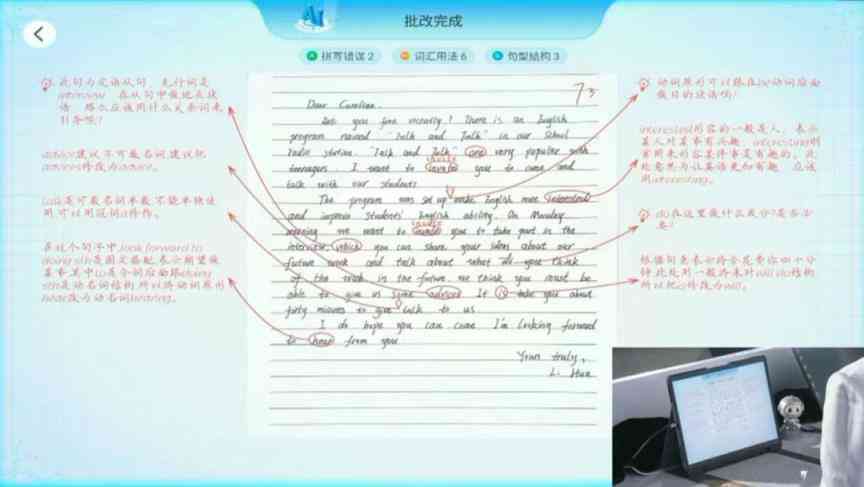 AI
批改完成
拼写错误 2
词汇用法 6
句型结构 3
此句为定语从句，先行词是
interview，在从句中做地点状
语，那么应该用什么关系词来
引导呢?
advice建议，不可数名词，建议把
advices修改为advice。
talk是可数名词单数，不能单独使
用，可以用冠词a修饰。
在这个句子中，look forward to
doing sth是固定搭配，表示期望做
某事，其中to是介词后面跟doing
sth是动名词结构，所以将动词原形
hear改为动名词hearing。
73
Dear Caroline.
Are you fine recently? There is an English
program named "Talk and Talk" in our School
radio station. "Talk and Talk" one very popular with
teenagers. I want to you to come and
talk with our students.
The program was set up make English more interested
and improve students' English ability. On Monday
morning we want to you to take part in the
interview, which you can share your ideas about our
future work and talk about what do you think
of the work in the future. we think you must be
able to give us some advices. It is take you about
forty minutes to give talk to us.
I do hope you can come. I'm looking forward
to hear from you
Yours truly,
Li Hua
动词原形可以跟在be动词后面
做目的状语吗?
interested形容的一般是人，表示
某人对某事有兴趣，interesting则
常用来形容某件事是有趣的。此
处意思为让英语更加有趣，应该
用interesting。
do在这里做什么成分?是否必
要?
根据句意表示将会花费你四十分
钟，此处用一般将来时will do结构
所以把is修改为will。